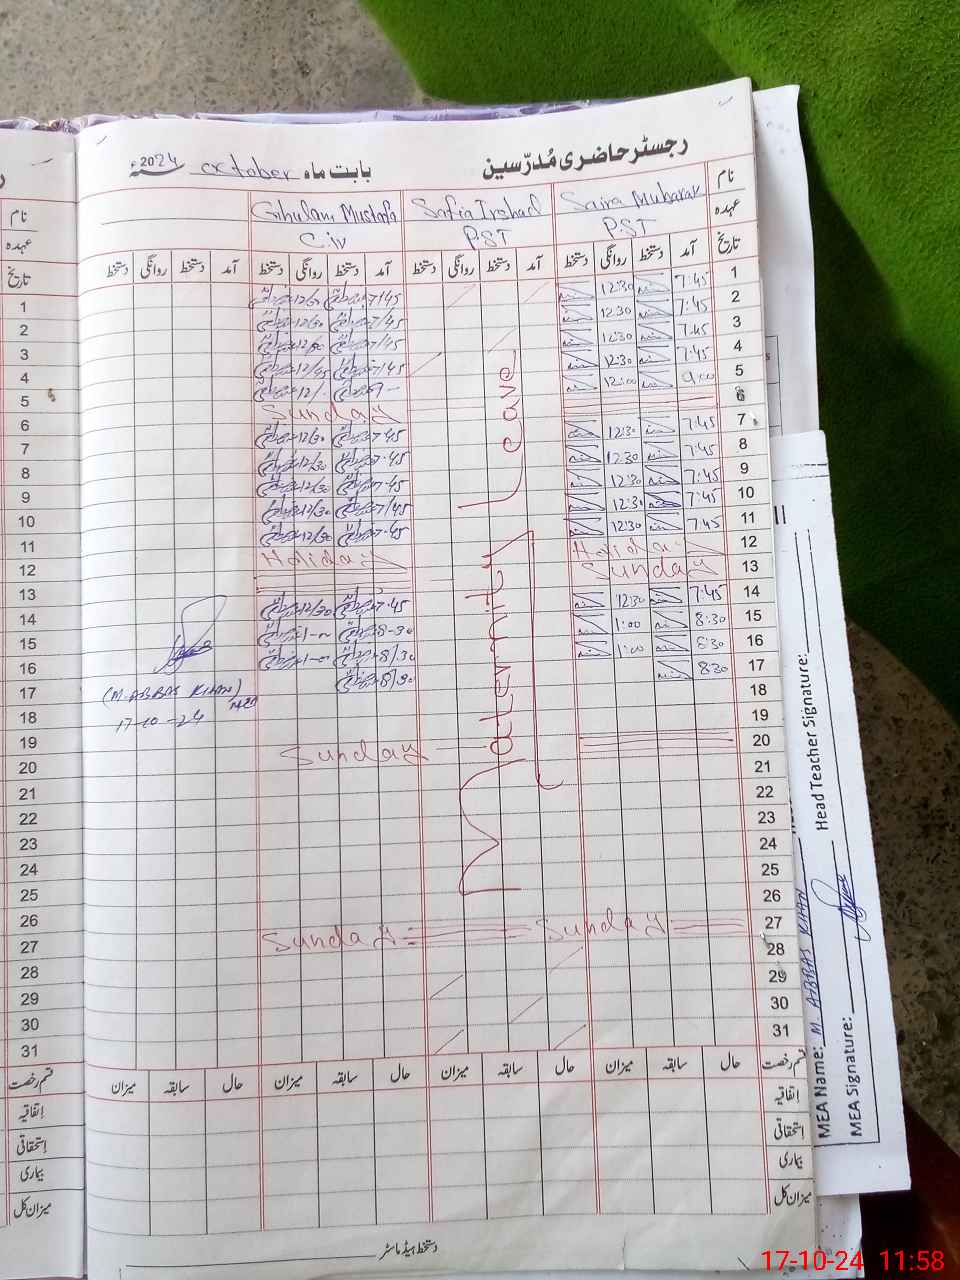 رجسٹر حاضری مُدرّسین
بابت ماہ October سنہ 2024ء
نام Saira Mubarak Safia Irshad Ghulam Mustafa
عہدہ PST PST C.iv
تاریخ آمد دستخط روانگی دستخط آمد دستخط روانگی دستخط آمد دستخط روانگی دستخط آمد دستخط روانگی دستخط
1 7:45 12:30 7/45 12/30
2 7:45 12:30 7/45 12/30
3 7:45 12:30 7/45 12/30
4 7:45 12:30 7/45 12/45
5 9:00 12:00 9- 12/-
6 Sunday
7 7:45 12:30 7-45 12/30
8 7:45 12:30 7-45 12/30
9 7:45 12:30 7-45 12/30
10 7:45 12:30 7/45 12/30
11 7:45 12:30 7-45 12/30
12 Holiday Holiday
13 Sunday
14 7:45 12:30 7-45 12/30
15 8:30 1:00 8-30
16 8:30 1:00 8/30
17 8:30 8/30
18
19
20 Sunday
21
22
23
24
25
26
27 Sunday Sunday
28
29
30
31
Maternity Leave
(M. ABBAS KHAN)
17-10-24
قسم رخصت حال سابقہ میزان حال سابقہ میزان حال سابقہ میزان حال سابقہ میزان
اتفاقیہ
استحقاقی
بیماری
میزان کل
دستخط ہیڈ ماسٹر
نام
عہدہ
تاریخ
1
2
3
4
5
6
7
8
9
10
11
12
13
14
15
16
17
18
19
20
21
22
23
24
25
26
27
28
29
30
31
قسم رخصت
اتفاقیہ
استحقاقی
بیماری
میزان کل
MEA Name: M. ABBAS KHAN
Head Teacher Signature:
MEA Signature:
17-10-24 11:58